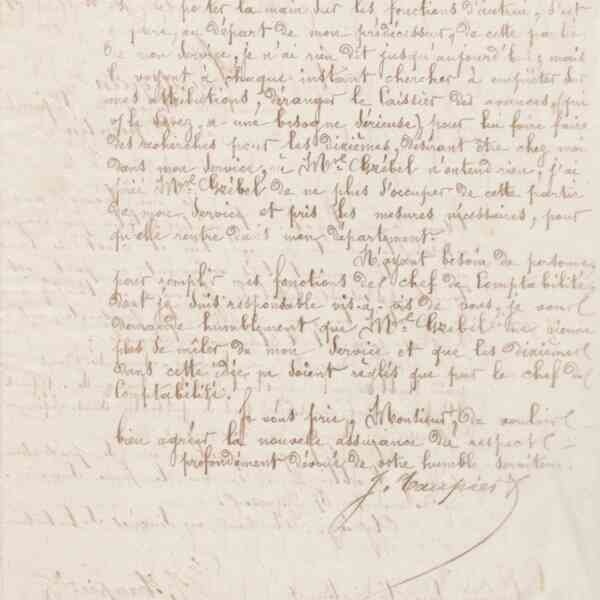 porter la main sur les fonctions d'autrui, s'est
au départ de mon prédécesseur, de cette partie
de mon service, je n'ai rien dit jusqu'aujourd'hui; mais
le voyant, à chaque instant chercher à empiéter sur
mes attributions, déranger le Caissier des avances, (qui
vous le savez, a une besogne sérieuse) pour lui faire faire
des recherches pour les dixièmes, désirant être chez moi
dans mon service, où Mr. Grébel n'entend rien, j'ai
prié Mr. Grébel de ne plus s'occuper de cette partie
de mon service et pris les mesures nécessaires, pour
qu'elle rentre dans mon département.
N'ayant besoin de personne
pour remplir mes fonctions de chef de Comptabilité
dont je suis responsable vis-à-vis de vous, je vous
demande humblement que Mr. Grébel ne vienne
plus se mêler du mon service et que les dixièmes
dans cette idée, ne soient réglés que par le chef de
Comptabilité.
Je vous prie, Monsieur, de vouloir
bien agréer la nouvelle assurance du respect
profondément dévoué de votre humble serviteur.